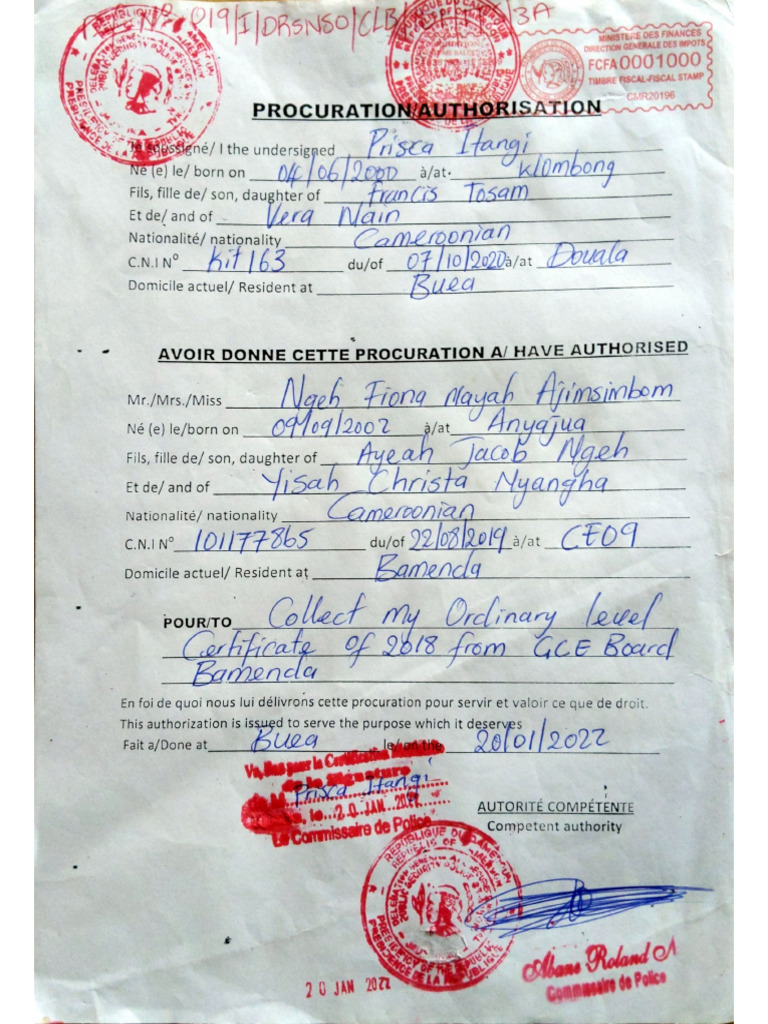 N° 019/I/DRSNSO/CLB/ /3A
REPUBLIQUE DU CAMEROUN
MINISTERE DES FINANCES
DIRECTION GENERALE DES IMPOTS
FCFA 0001000
TIMBRE FISCAL-FISCAL STAMP
CMR20196
PROCURATION/AUTHORISATION
Je soussigné/ I the undersigned Prisca Itangi
Né (e) le/ born on 04/06/2000 à/at Klombong
Fils, fille de/ son, daughter of Francis Tosam
Et de/ and of Vera Nain
Nationalité/ nationality Cameroonian
C.N.I N° Kit163 du/of 07/10/2020 à/at Douala
Domicile actuel/ Resident at Buea
AVOIR DONNE CETTE PROCURATION A/ HAVE AUTHORISED
Mr./Mrs./Miss Ngeh Fiong Nayah Ajimsimbom
Né (e) le/born on 09/09/2002 à/at Anyajua
Fils, fille de/ son, daughter of Ayeah Jacob Ngeh
Et de/ and of Yisah Christa Nyangha
Nationalité/ nationality Cameroonian
C.N.I N° 101177865 du/of 22/08/2019 à/at CE09
Domicile actuel/ Resident at Bamenda
POUR/TO Collect my Ordinary level
Certificate of 2018 from GCE Board
Bamenda
En foi de quoi nous lui délivrons cette procuration pour servir et valoir ce que de droit.
This authorization is issued to serve the purpose which it deserves
Fait a/Done at Buea le/on the 20/01/2022
Vu, Bas pour la Certification
de la signature
de M. Prisca Itangi
, le... 20 JAN 2022
Le Commissaire de Police
AUTORITÉ COMPÉTENTE
Competent authority
REPUBLIQUE DU CAMEROUN
REPUBLIC OF CAMEROON
PRESIDENCY OF THE REPUBLIC
PRESIDENCE DE LA REPUBLIQUE
20 JAN 2022
Abane Roland N
Commissaire de Police